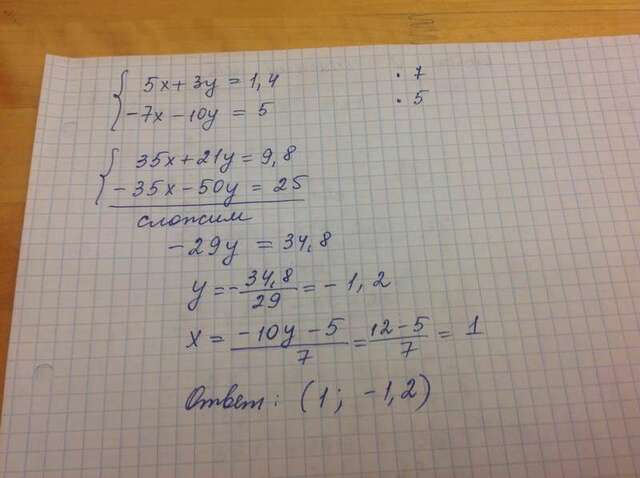 5x + 3y = 1,4 · 7
-7x - 10y = 5 · 5
35x + 21y = 9,8
- 35x - 50y = 25
сложим
- 29y = 34,8
y = - 34,8/29 = - 1,2
x = (-10y - 5)/7 = (12 - 5)/7 = 1
Ответ: (1; -1,2)